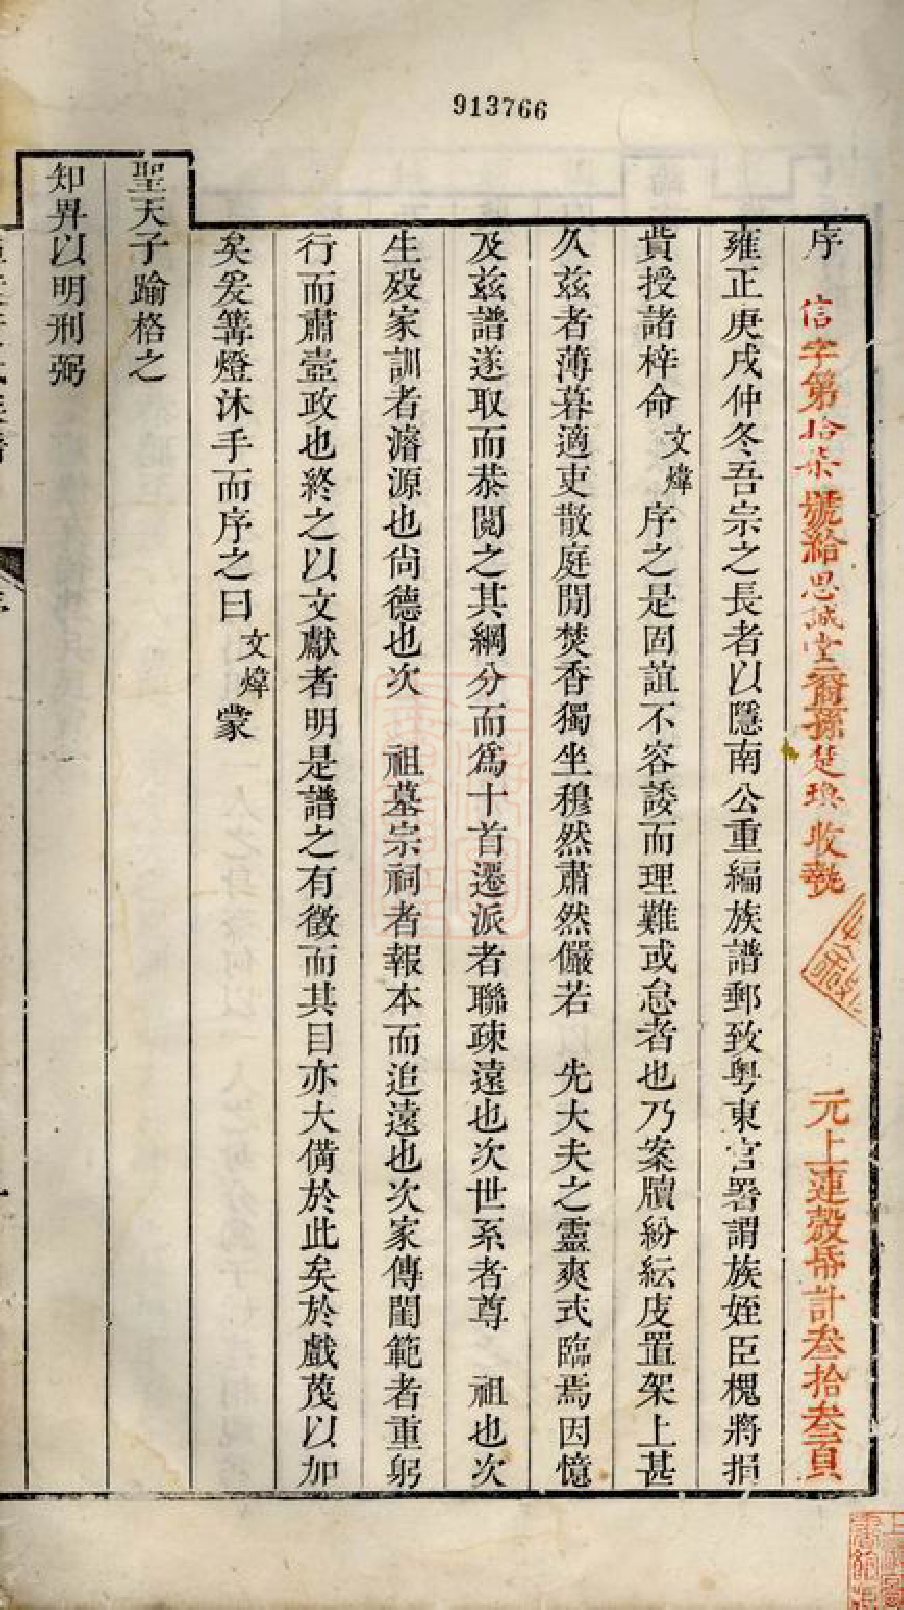 913766
序
信字第拾柒號給思誠堂裔孫楚珠收執
元上連殼帋計叁拾叁頁
雍正庚戌仲冬吾宗之長者以隱南公重編族譜郵致粤東官署謂族姪臣槐將捐
貲授諸梓命文煒序之是固誼不容諉而理難或怠者也乃案牘紛紜庋置架上甚
久茲者薄暮適吏散庭閒焚香獨坐穆然肅然儼若 先大夫之靈爽式臨焉因憶
及茲譜遂取而恭閱之其綱分而爲十首遷派者聯疎遠也次世系者尊 祖也次
生殁家訓者濬源也尙德也次 祖墓宗祠者報本而追遠也次家傳閨範者重躬
行而肅壼政也終之以文獻者明是譜之有徵而其目亦大備於此矣於戲茂以加
矣爰篝燈沐手而序之曰文煒蒙
聖天子踰格之
知畀以明刑弼